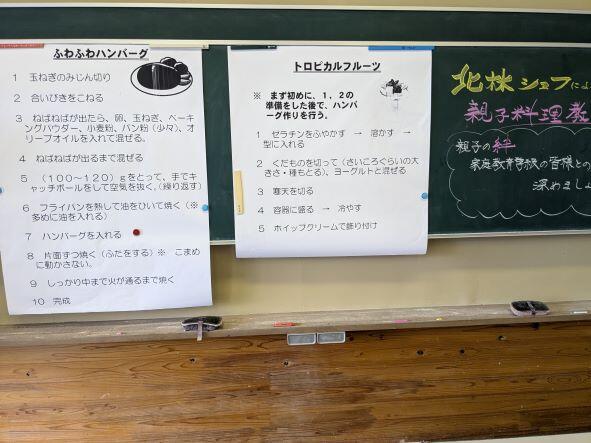 ふわふわハンバーグ
1 玉ねぎのみじん切り
2 合いびきをこねる
3 ねばねばが出たら、卵、玉ねぎ、ベー
キングパウダー、小麦粉、パン粉（少々）、オ
リーブオイルを入れて混ぜる。
4 ねばねばが出るまで混ぜる
5 （100～120）gをとって、手でキ
ャッチボールをして空気を抜く,（繰り返す）
6 フライパンを熱して油をひいて焼く（※
多めに油を入れる）
7 ハンバーグを入れる
8 片面ずつ焼く（ふたをする）※ こまめ
に動かさない。
9 しっかり中まで火が通るまで焼く
10 完成
トロピカルフルーツ
※ まず初めに、1，2の
準備をした後で、ハンバ
ーグ作りを行う。
1 ゼラチンをふやかす → 溶かす →
型に入れる
2 くだものを切って（さいころぐらいの大
きさ・種もとる）、ヨーグルトと混ぜる
3 寒天を切る
4 容器に盛る → 冷やす
5 ホイップクリームで飾り付け
北林シェフによ
親子料理教
親子の絆
家庭教育学級の皆様との
深めましょ